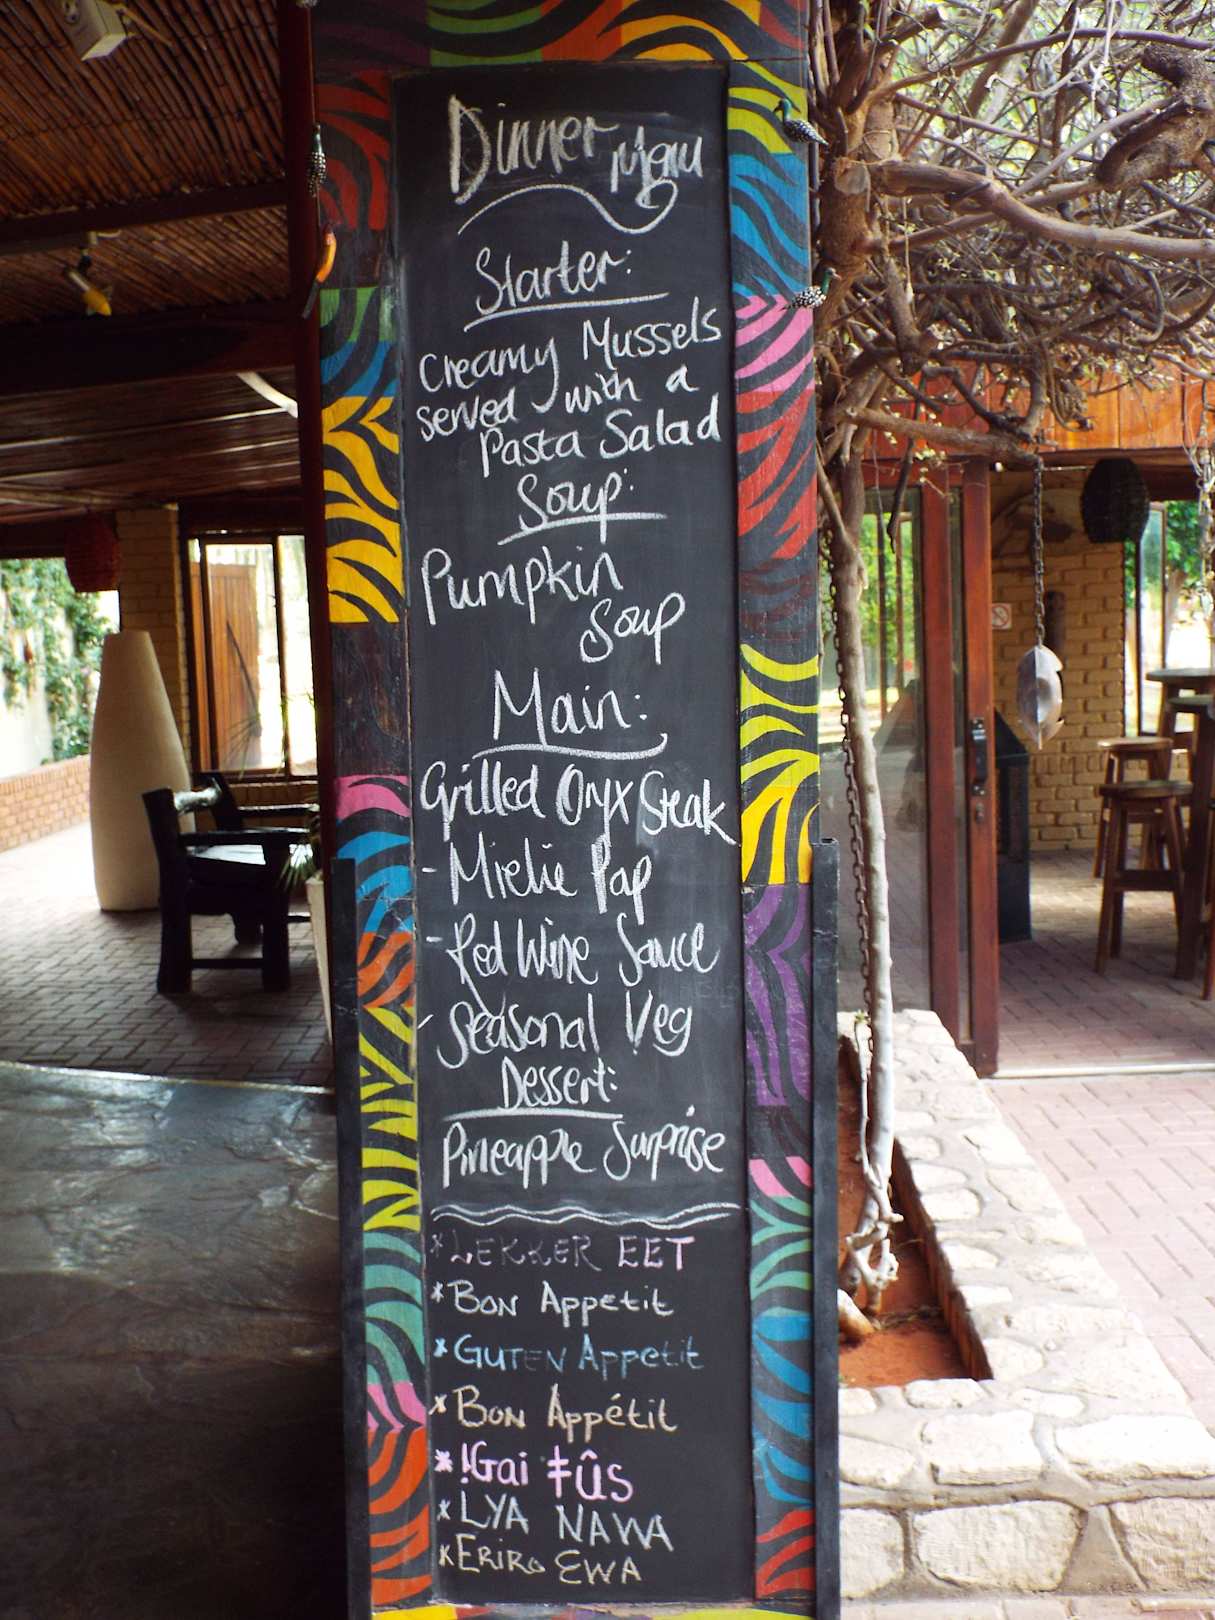 Dinner Menu
Starter:
Creamy Mussels
served with a
Pasta Salad
Soup:
Pumpkin
Soup
Main:
Grilled Oryx Steak
- Mielie Pap
- Red Wine Sauce
- Seasonal Veg
Dessert:
Pineapple Surprise
*LEKKER EET
*Bon Appetit
*Guten Appetit
*Bon Appétit
*!Gai ǂûs
*LYA NAWA
*Eriro EWA